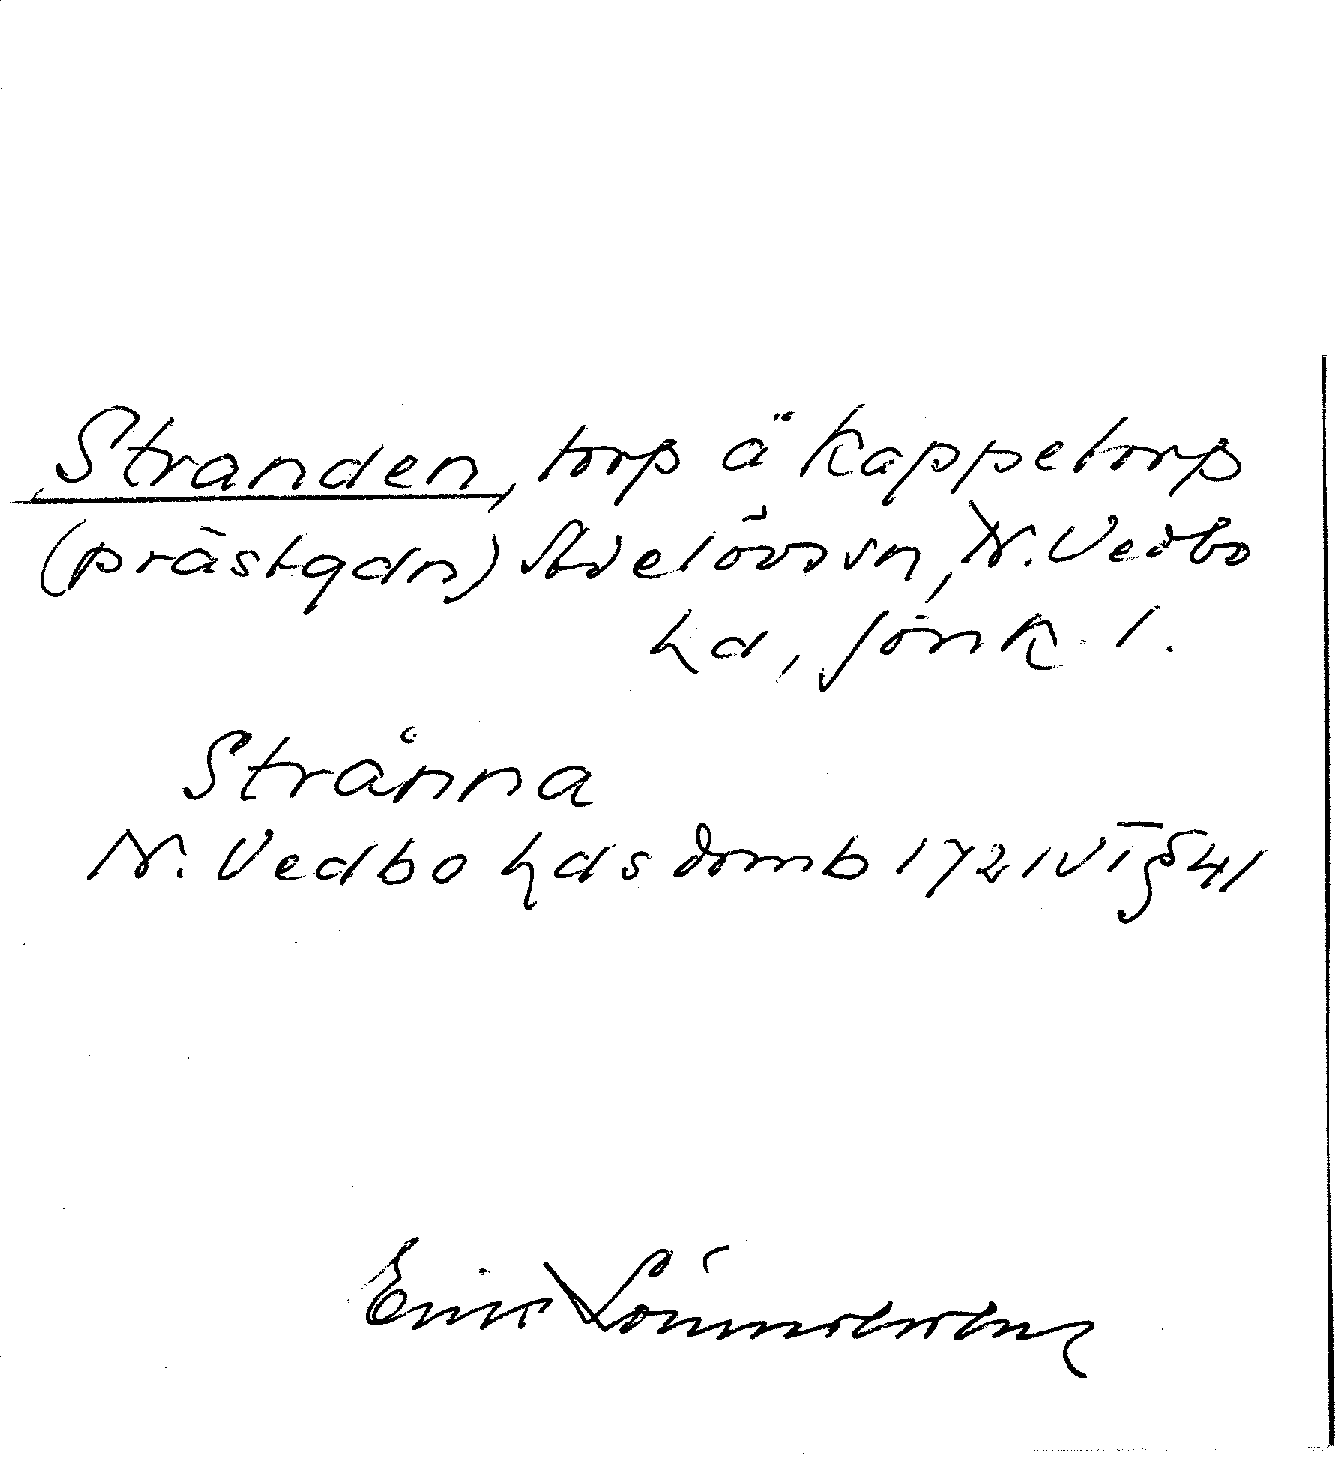 Stranden, torp å Kappetorp
(prästgdn) Adelövs sn, N. Vedbo
hd, Jönk. l.
Strånna
N. Vedbo hds domb 1721 VT § 41
Eric